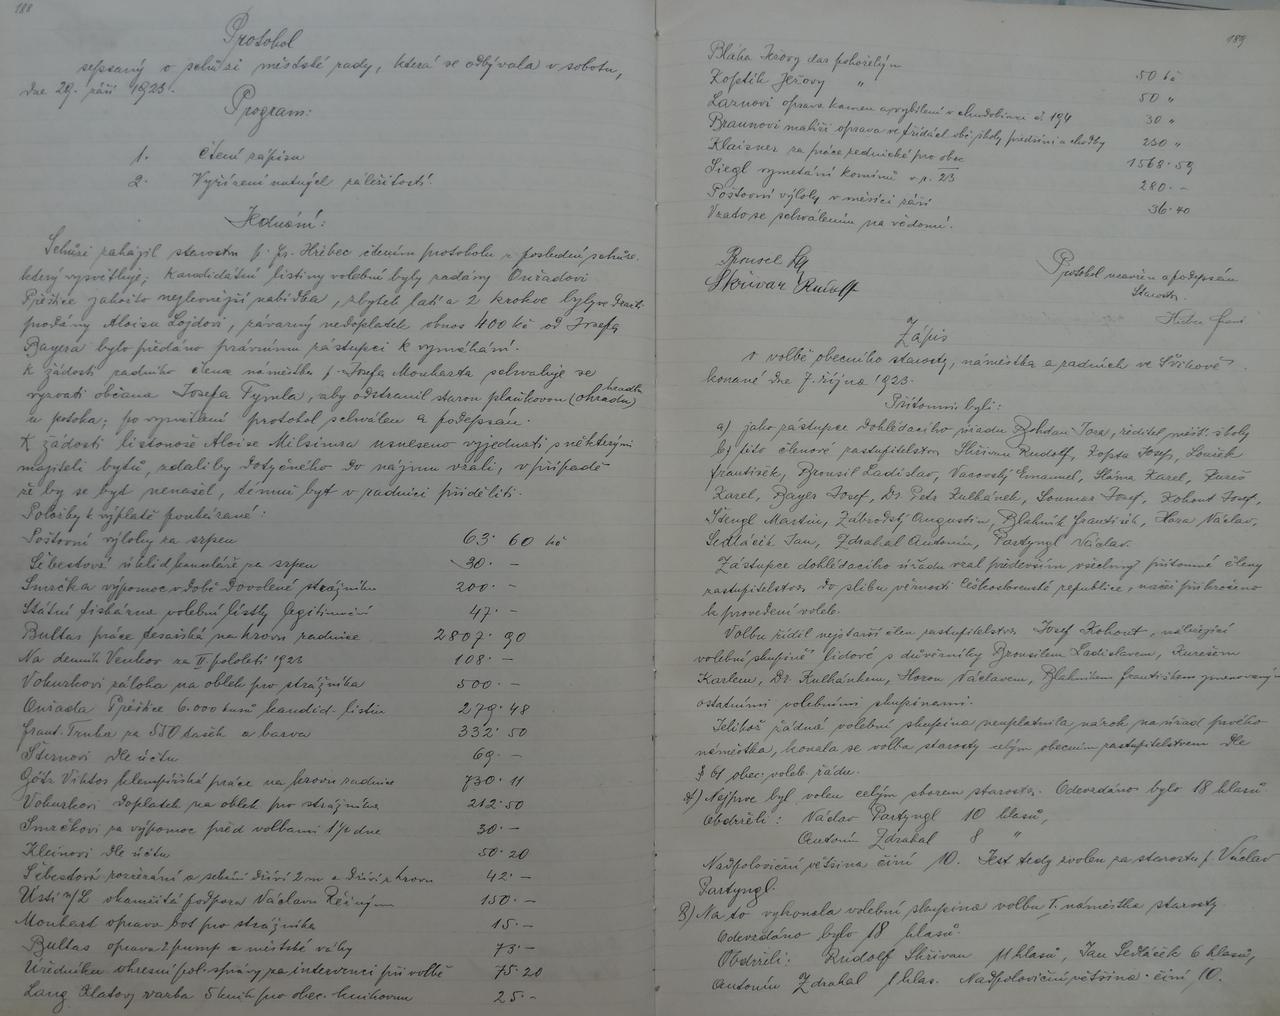 188
Protokol
sepsaný o schůzi městské rady, která se odbývala v sobotu,
dne 29. září 1923.
Program:
1. Čtení zápisu
2. Vyřízení nutných záležitostí.
Jednání:
Schůzi zahájil starosta p. Fr. Hříbec čtením protokolu z poslední schůze.
který vysvětluje; Kandidátní listiny volební byly zadány Oniadovi
Přeštice jakožto nejlevnější nabídka, zbytek latí a 2 krokve byly
prodány Aloisu Lojdovi, závazný nedoplatek obnos 400 Kč od Josefa
Bayera bylo předáno právnímu zástupci k vymáhání.
K žádosti radního člena náměstka p. Josefa Monharta schvaluje se
vyzvati občana Josefa Tymla, aby odstranil starou plaňkovou (ohradu) hradbu
u potoka; po vysvětlení protokol schválen a podepsán.
K žádosti listonoše Aloise Milsimra usneseno vyjednati s některými
majiteli bytů, zdali by dotyčného do nájmu vzali, v případě
že by se byt nenašel, témuž byt v radnici přiděliti.
Položky k výplatě poukázané:
Poštovní výlohy za srpen 63.60 kč
Šebestová úklid kanceláře za srpen 30.-
Smrčka výpomoc v době dovolené strážníka 200.-
Státní tiskárna volební lístky legitimační 47.-
Bultas práce tesařská na krovu radnice 2807.90
Na denník Venkov za II. pololetí 1923 108.-
Vokurkovi záloha na oblek pro strážníka 500.-
Oniada Přeštice 6.000 kusů kandid. listin 279.48
Frant. Truba za 550 tašek a barva 332.50
Šternovi dle účtu 69.-
Götz Viktor klempířské práce na krovu radnice 730.11
Vokurkovi doplatek na oblek pro strážníka 212.50
Smrčkovi za výpomoc před volbami 1½ dne 30.-
Kleinovi dle účtu 50.20
Šebestová rozřezání a sekání dříví 2 m a dříví z krovu 42.-
Ústí n/L okamžitá podpora Václavu Řežným 150.-
Monhart oprava bot pro strážníka 15.-
Bultas oprava 2 pump a městské váhy 73.-
Úředníku okresní pol. správy za intervenci při volbě 75.20
Lang Klatovy vazba 5 knih pro obec. knihovnu 25.-
189
Bláha Ježovy dar pohořelým 50 kč
Koptík Ježovy " 50 "
Laznovi oprava kamen a vybílení v chudobinci č. 194 30 "
Braunovi malíři oprava ve třídách obě školy předsíni a chodby 250 "
Klaisner za práce zednické pro obec 1568.59
Siegl vymetání komínů v r. 23 280.-
Poštovní výlohy v měsíci září 36.40
Vzato se schválením na vědomí.
Brousil La
Skřivan Rudolf
Protokol uzavřen a podepsán
Starosta.
Zápis
o volbě obecního starosty, náměstka a radních ve Švihově
konané dne 7. října 1923.
Přítomni byli:
a) jako zástupce dohlédacího úřadu Bohdan Jora, ředitel měšť. školy
b) tito členové zastupitelstva Skřivan Rudolf, Kopta Josef, Louček
František, Brousil Ladislav, Vacovský Emanuel, Sláma Karel, Kureš
Karel, Bayer Josef, Dr. Petr Kulhánek, Sommer Josef, Kohout Josef,
Štengl Martin, Zábrodský Augustin, Blahník František, Hora Václav,
Sedláček Jan, Zdrahal Antonín, Partyngl Václav.
Zástupce dohlédacího úřadu vzal především všechny přítomné členy
zastupitelstva do slibu věrnosti Československé republice, načež přikročeno
k provedení voleb.
Volbu řídil nejstarší člen zastupitelstva Josef Kohout, náležející
volební skupině lidové s důvěrníky Brousilem Ladislavem, Kurešem
Karlem, Dr. Kulhánkem, Horou Václavem, Blahníkem Františkem jmenovanými
ostatními volebními skupinami.
Jelikož žádná volební skupina neuplatnila nárok na úřad prvého
náměstka, konala se volba starosty celým obecním zastupitelstvem dle
§ 61 obec. voleb. řádu.
A) Nejprve byl volen celým sborem starosta. Odevzdáno bylo 18 hlasů.
Obdrželi: Václav Partyngl 10 hlasů,
Antonín Zdrahal 8 "
Nadpoloviční většina činí 10. Jest tedy zvolen za starostu p. Václav
Partyngl.
B) Na to vykonala volební skupina volbu I. náměstka starosty.
Odevzdáno bylo 18 hlasů.
Obdrželi: Rudolf Skřivan 11 hlasů, Jan Sedláček 6 hlasů,
Antonín Zdrahal 1 hlas. Nadpoloviční většina činí 10.